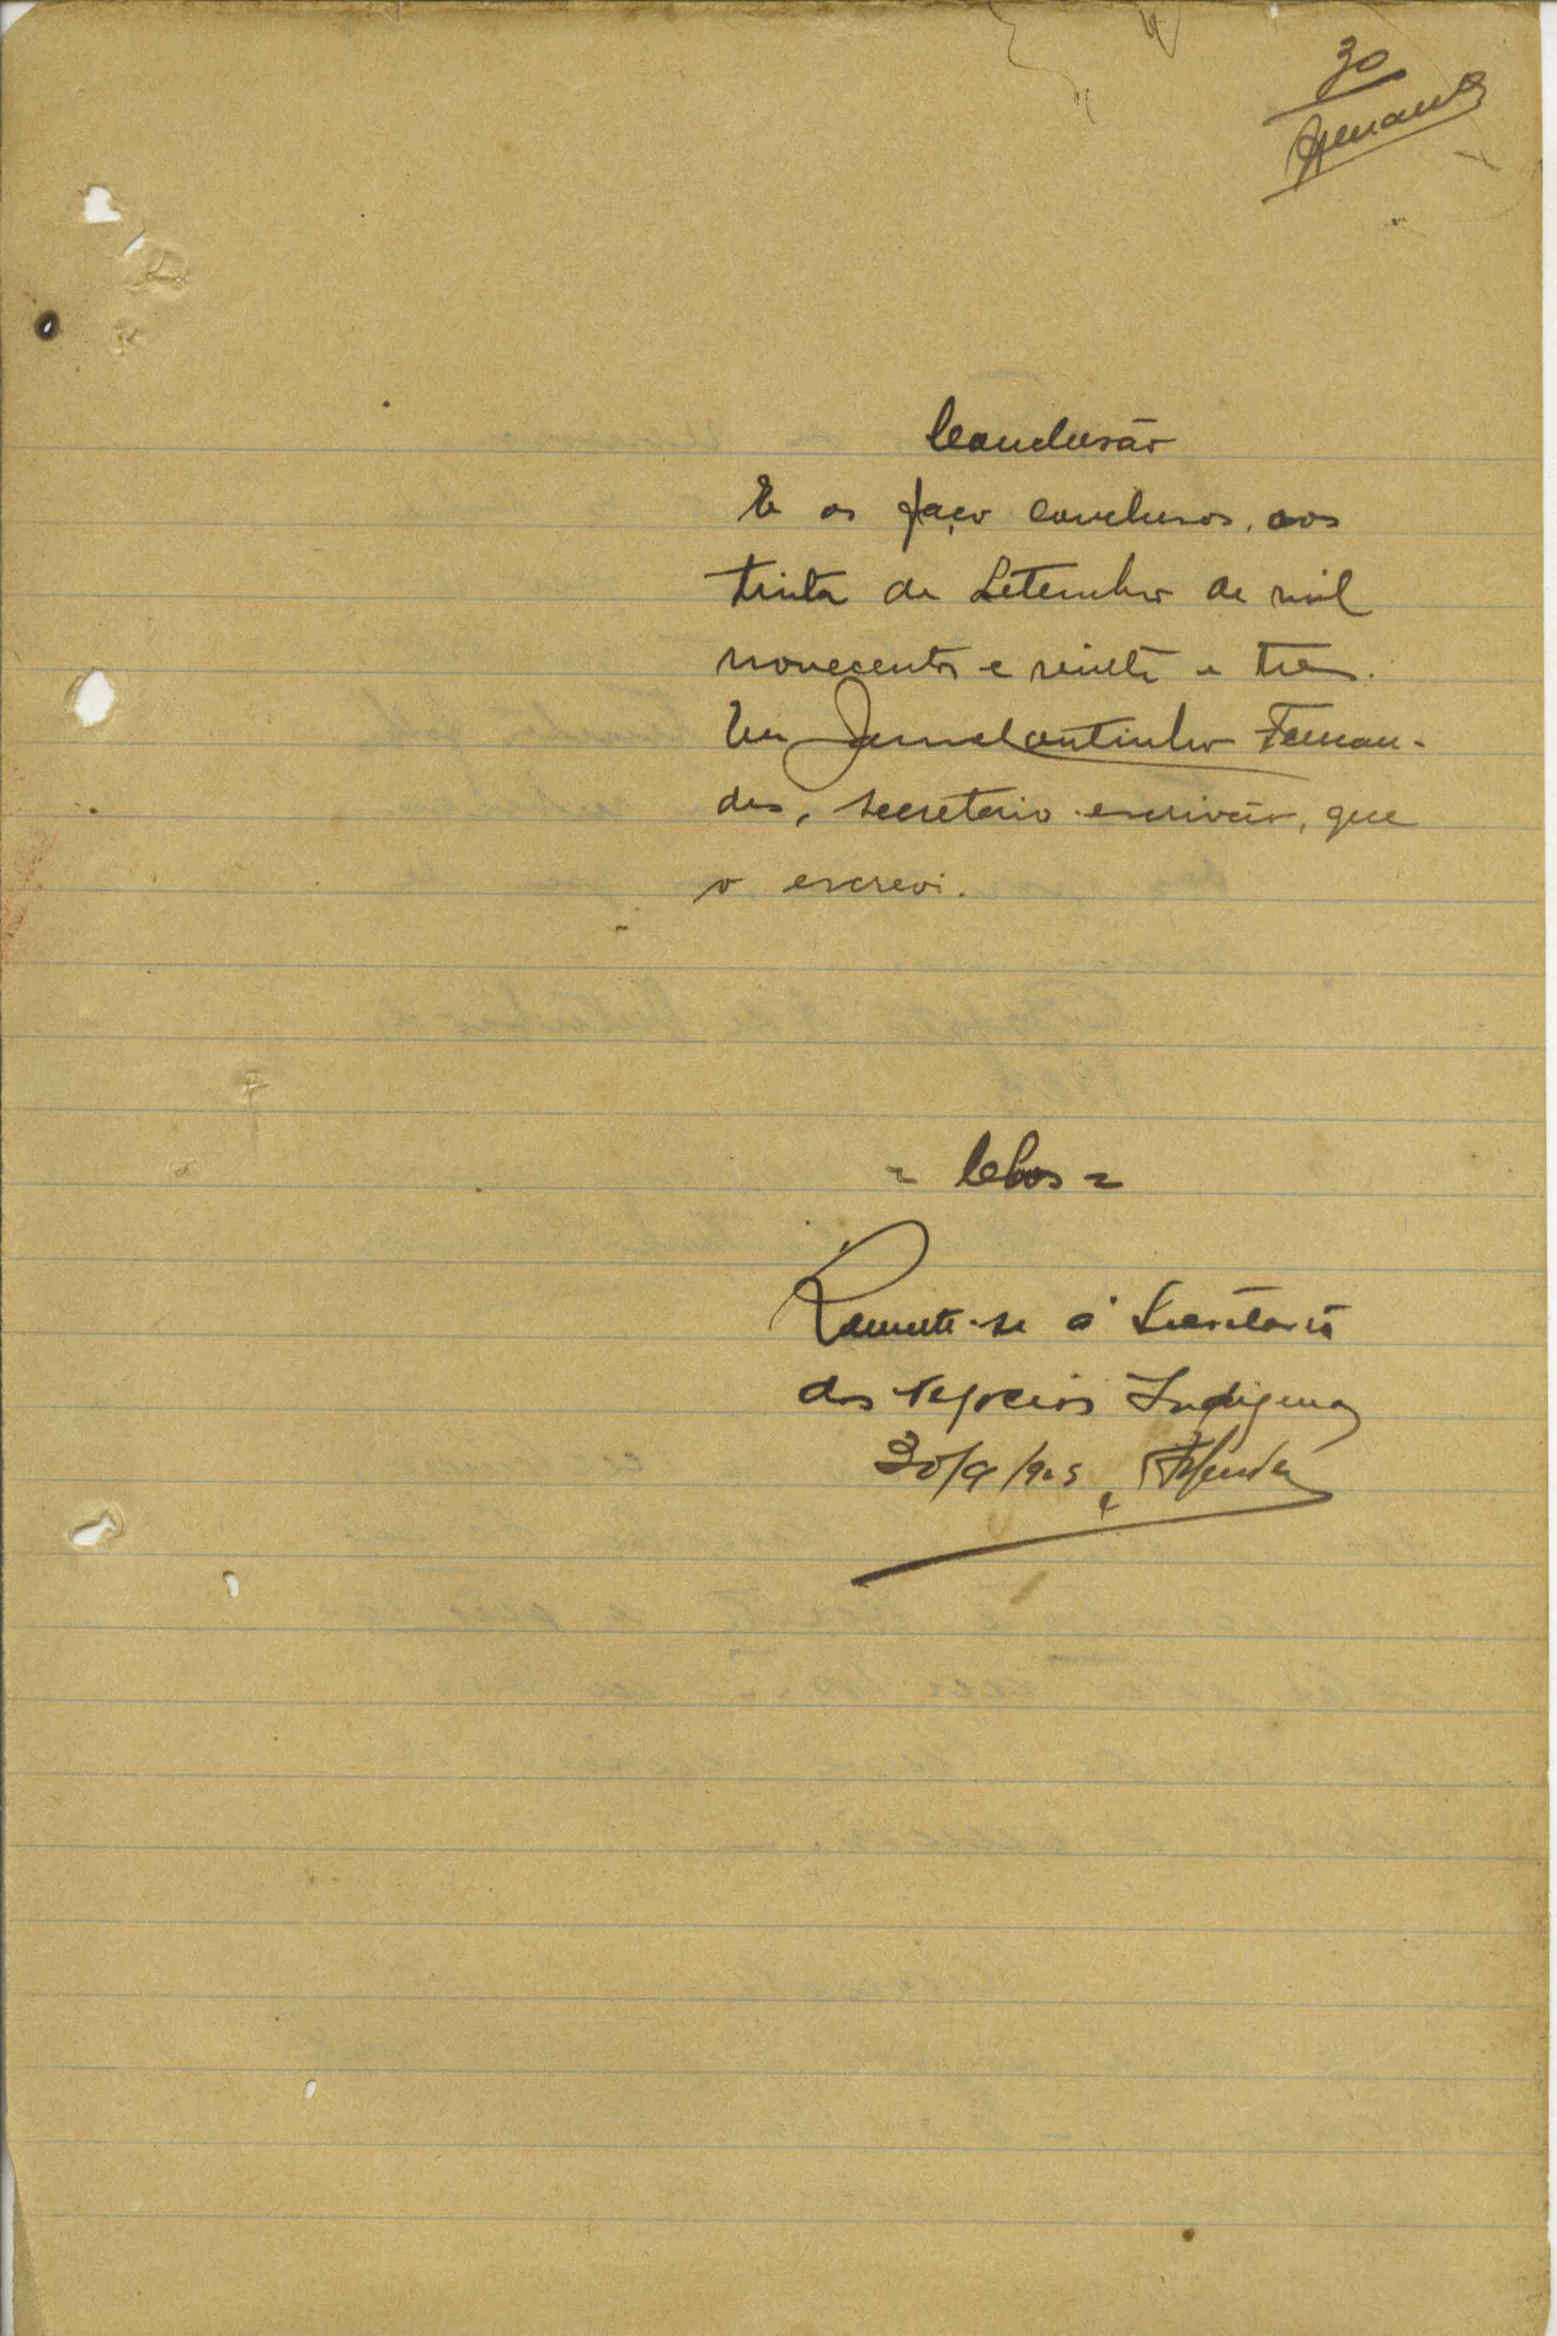 30
Conclusão
E os faço conclusos, aos
trinta de Setembro de mil
novecentos e vinte e tres.
Eu Coutinho Fernan-
des, secretario escrivão, que
o escrevi.
= Clos =
Remete-se á Secretaria
dos Negocios Indigenas
30/9/923